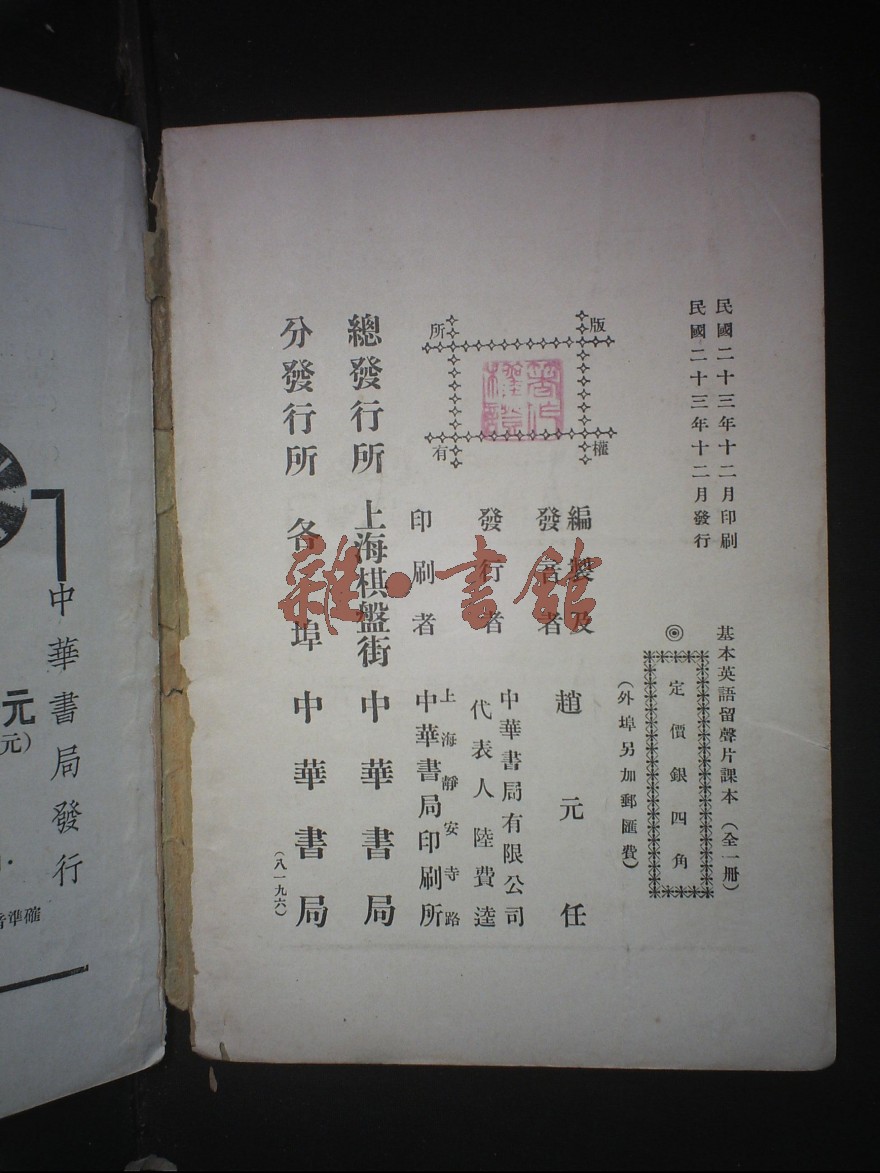 民國二十三年十二月印刷
民國二十三年十二月發行
基本英語留聲片課本(全一册)
◎定價銀四角
(外埠另加郵匯費)
版權所有
編製及發音者 趙元任
發行者 中華書局有限公司
代表人陸費逵
印刷者 上海靜安寺路
中華書局印刷所
總發行所 上海棋盤街 中華書局
分發行所 各埠 中華書局
(八一九六)
雜·書館
中華書局發行
元
元)
音準確